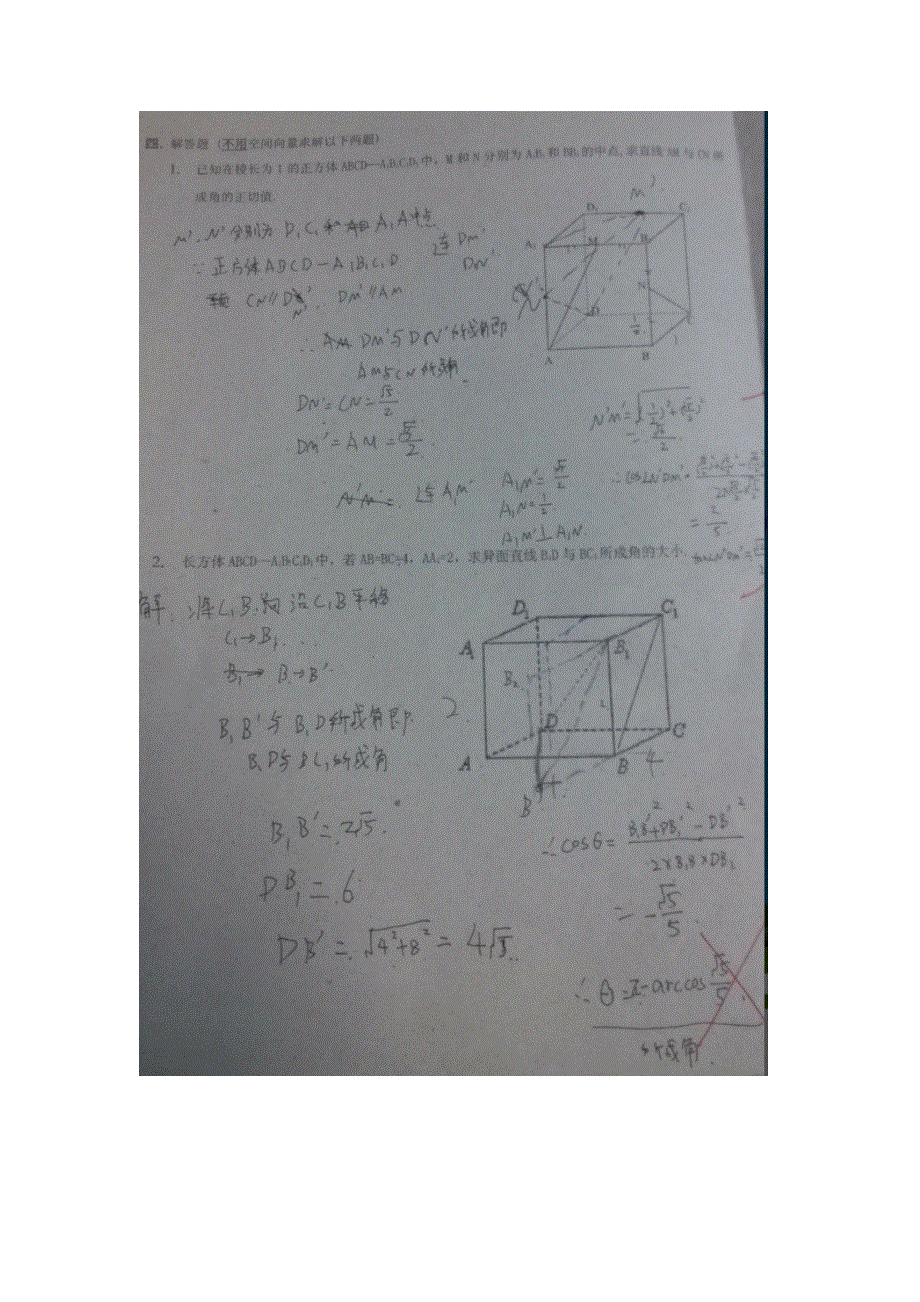 四、解答题（不用空间向量求解以下两题）
1. 已知在棱长为1的正方体ABCD—A₁B₁C₁D₁中，M和N分别为A₁B₁和BB₁的中点，求直线AM与CN所
成角的正切值.
M'、N'分别为D₁C₁和A₁A中点
连DM'
DN'
∵正方体ABCD-A₁B₁C₁D
CN∥DN'. DM'∥AM
∴DM'与DN'所成角即
AM与CN所成角.
DN'=CN=√5/2
DM'=AM=√5/2.
连A₁M'
A₁M'=√5/2
A₁N=1/2
A₁M'⊥A₁N.
N'M'=√((1/2)²+(√5/2)²)
=√6/2.
∴cos∠N'DM'=
=2/5.
M'
D₁
C₁
A₁
M
B₁
N
D
1/2
A
B
1
2. 长方体ABCD—A₁B₁C₁D₁中，若AB=BC=4，AA₁=2，求异面直线B₁D与BC₁所成角的大小.
解：将C₁B沿C₁B平移
C₁→B₁.
B→B'
B₁B'与B₁D所成角即
B₁D与BC₁所成角
B₁B'=2√5.
DB₁=6
DB'=√(4²+8²)=4√5.
D₁
C₁
A₁
B₁
B₂
2
D
C
A
B
4
B'
∴cosθ=(B₁B'²+DB₁²-DB'²)/(2×B₁B'×DB₁)
=-√5/5.
∴θ=π-arccos√5/5.
所成角.